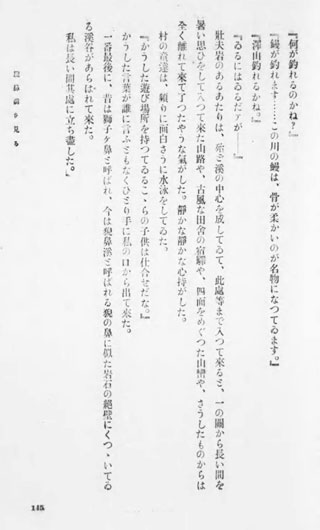 『何が釣れるのかね？』
『鰻が釣れます……この川の鰻は、骨が柔かいのが名物になつてゐます。』
『澤山釣れるかね。』
『ゐるにはゐるだァが――』
壯夫岩のあるあたりは、殆ど溪の中心を成してゐて、此處等まで入つて來ると、一の關から長い間を
暑い思ひをして入つて來た山路や、古風な田舍の宿驛や、四面をめぐつた山巒や、さうしたものからは
全く離れて來て了つたやうな氣がした。靜かな靜かな心持がした。
村の童達は、頻りに面白さうに水泳をしてゐた。
『かうした遊び場所を持つてゐるこゝらの子供は仕合せだな。』
かうした言葉が誰に言ふともなくひとり手に私の口から出て來た。
一番最後に、昔は獅子ヶ鼻と呼ばれ、今は猊鼻溪と呼ばれる猊の鼻に似た岩石の絕壁にくつゝいてゐ
る溪谷があらはれて來た。
私は長い間其處に立ち盡した。』
溪を見る
145